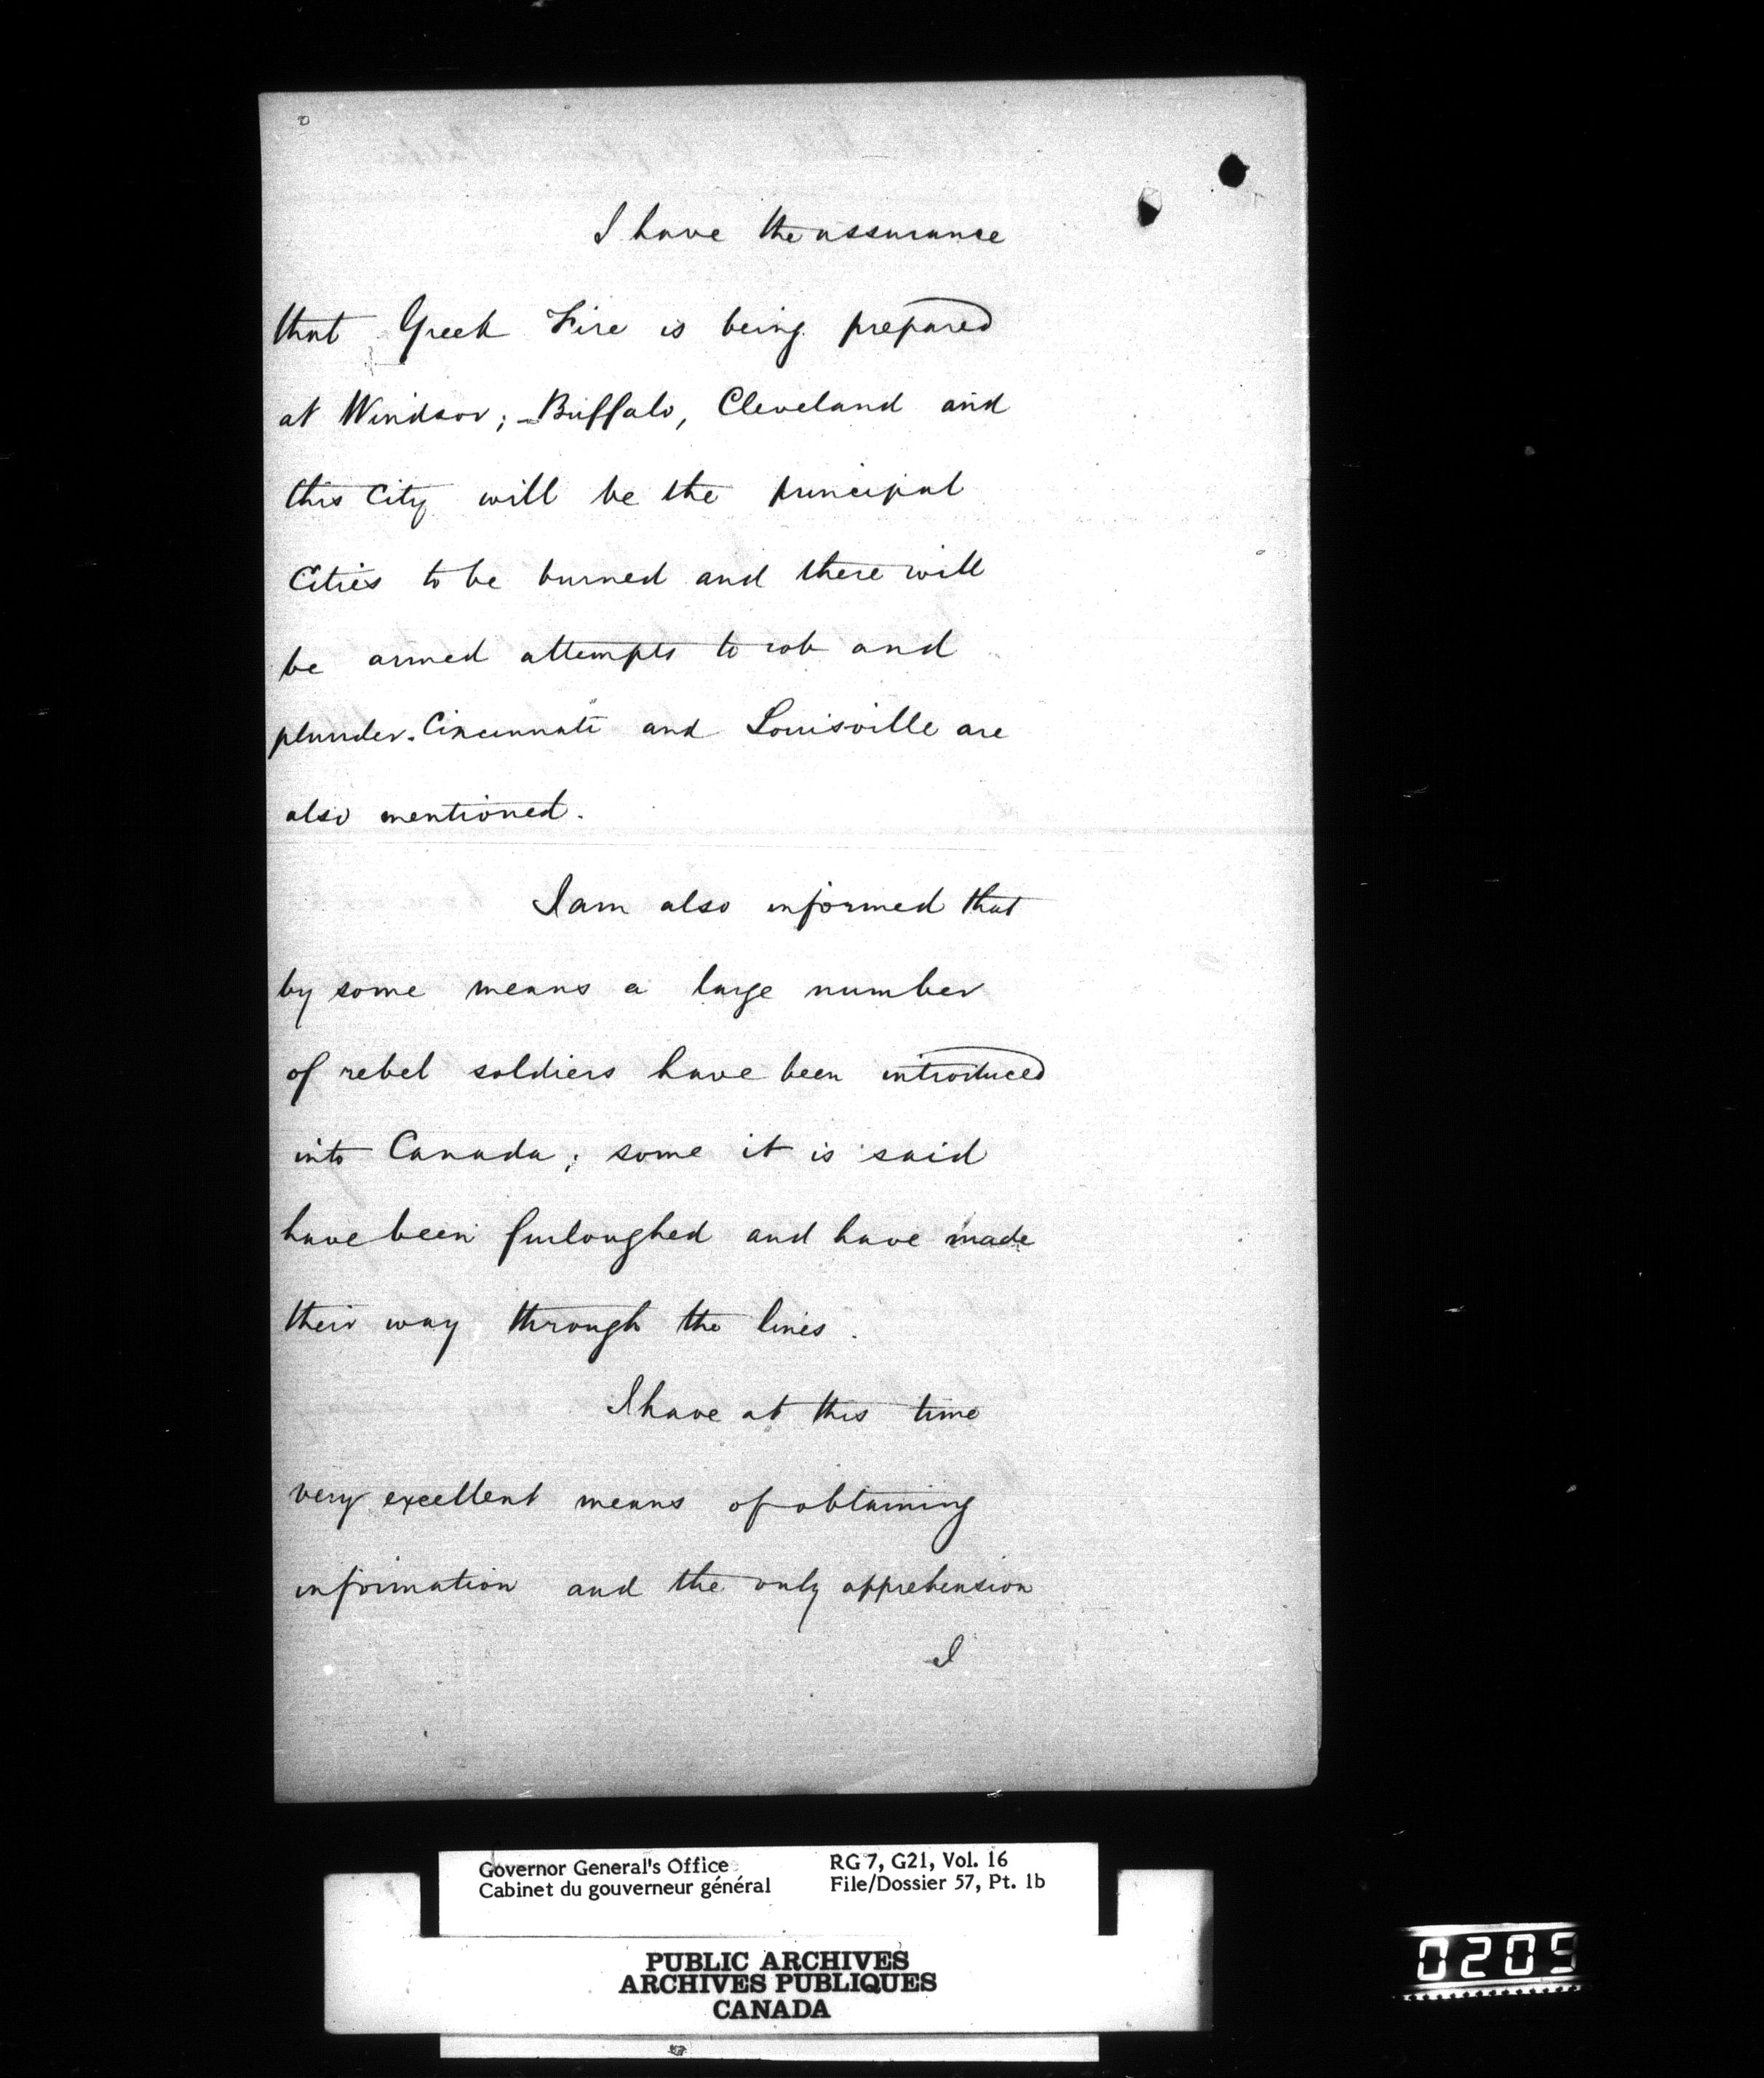 I have the assurance
that Greek Fire is being prepared
at Windsor; - Buffalo, Cleveland and
this City will be the principal
Cities to be burned and there will
be armed attempts to rob and
plunder. Cincinnati and Louisville are
also mentioned.
I am also informed that
by some means a large number
of rebel soldiers have been introduced
into Canada; some it is said
have been furloughed and have made
their way through the lines.
I have at this time
very excellent means of obtaining
information and the only apprehension
I
Governor General's Office RG 7, G21, Vol. 16
Cabinet du gouverneur général File/Dossier 57, Pt. 1b
PUBLIC ARCHIVES
ARCHIVES PUBLIQUES
CANADA
0205